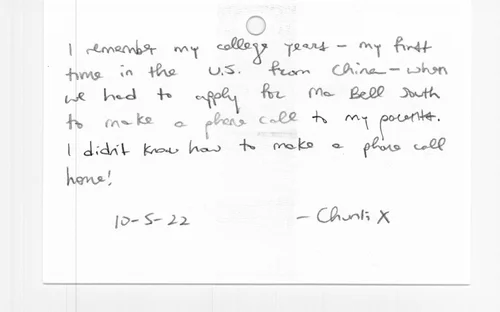 I remember my college years – my first
time in the U.S. from China – when
we had to apply for Ma Bell South
to make a phone call to my parents.
I didn't know how to make a phone call
home!
10-5-22 – Chunli X